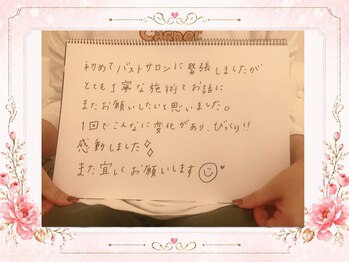 Casner
初めてバストサロンに緊張しましたが
とても丁寧な施術とお話に
またお願いしたいと思いました。
1回でこんなに変化があり、びっくり!!
感動しました
また宜しくお願いします